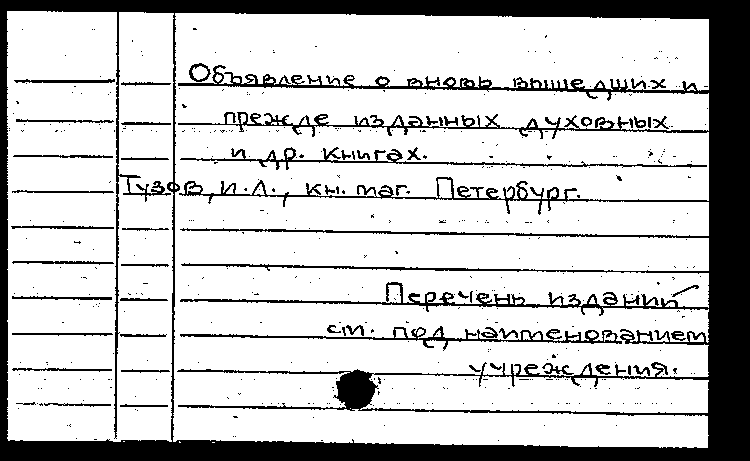 Объявление о вновь вышедших и
прежде изданных духовных
и др. книгах.
Тузов, И.Л., кн. маг. Петербург.
Перечень изданий
см. под наименованием
учреждения.